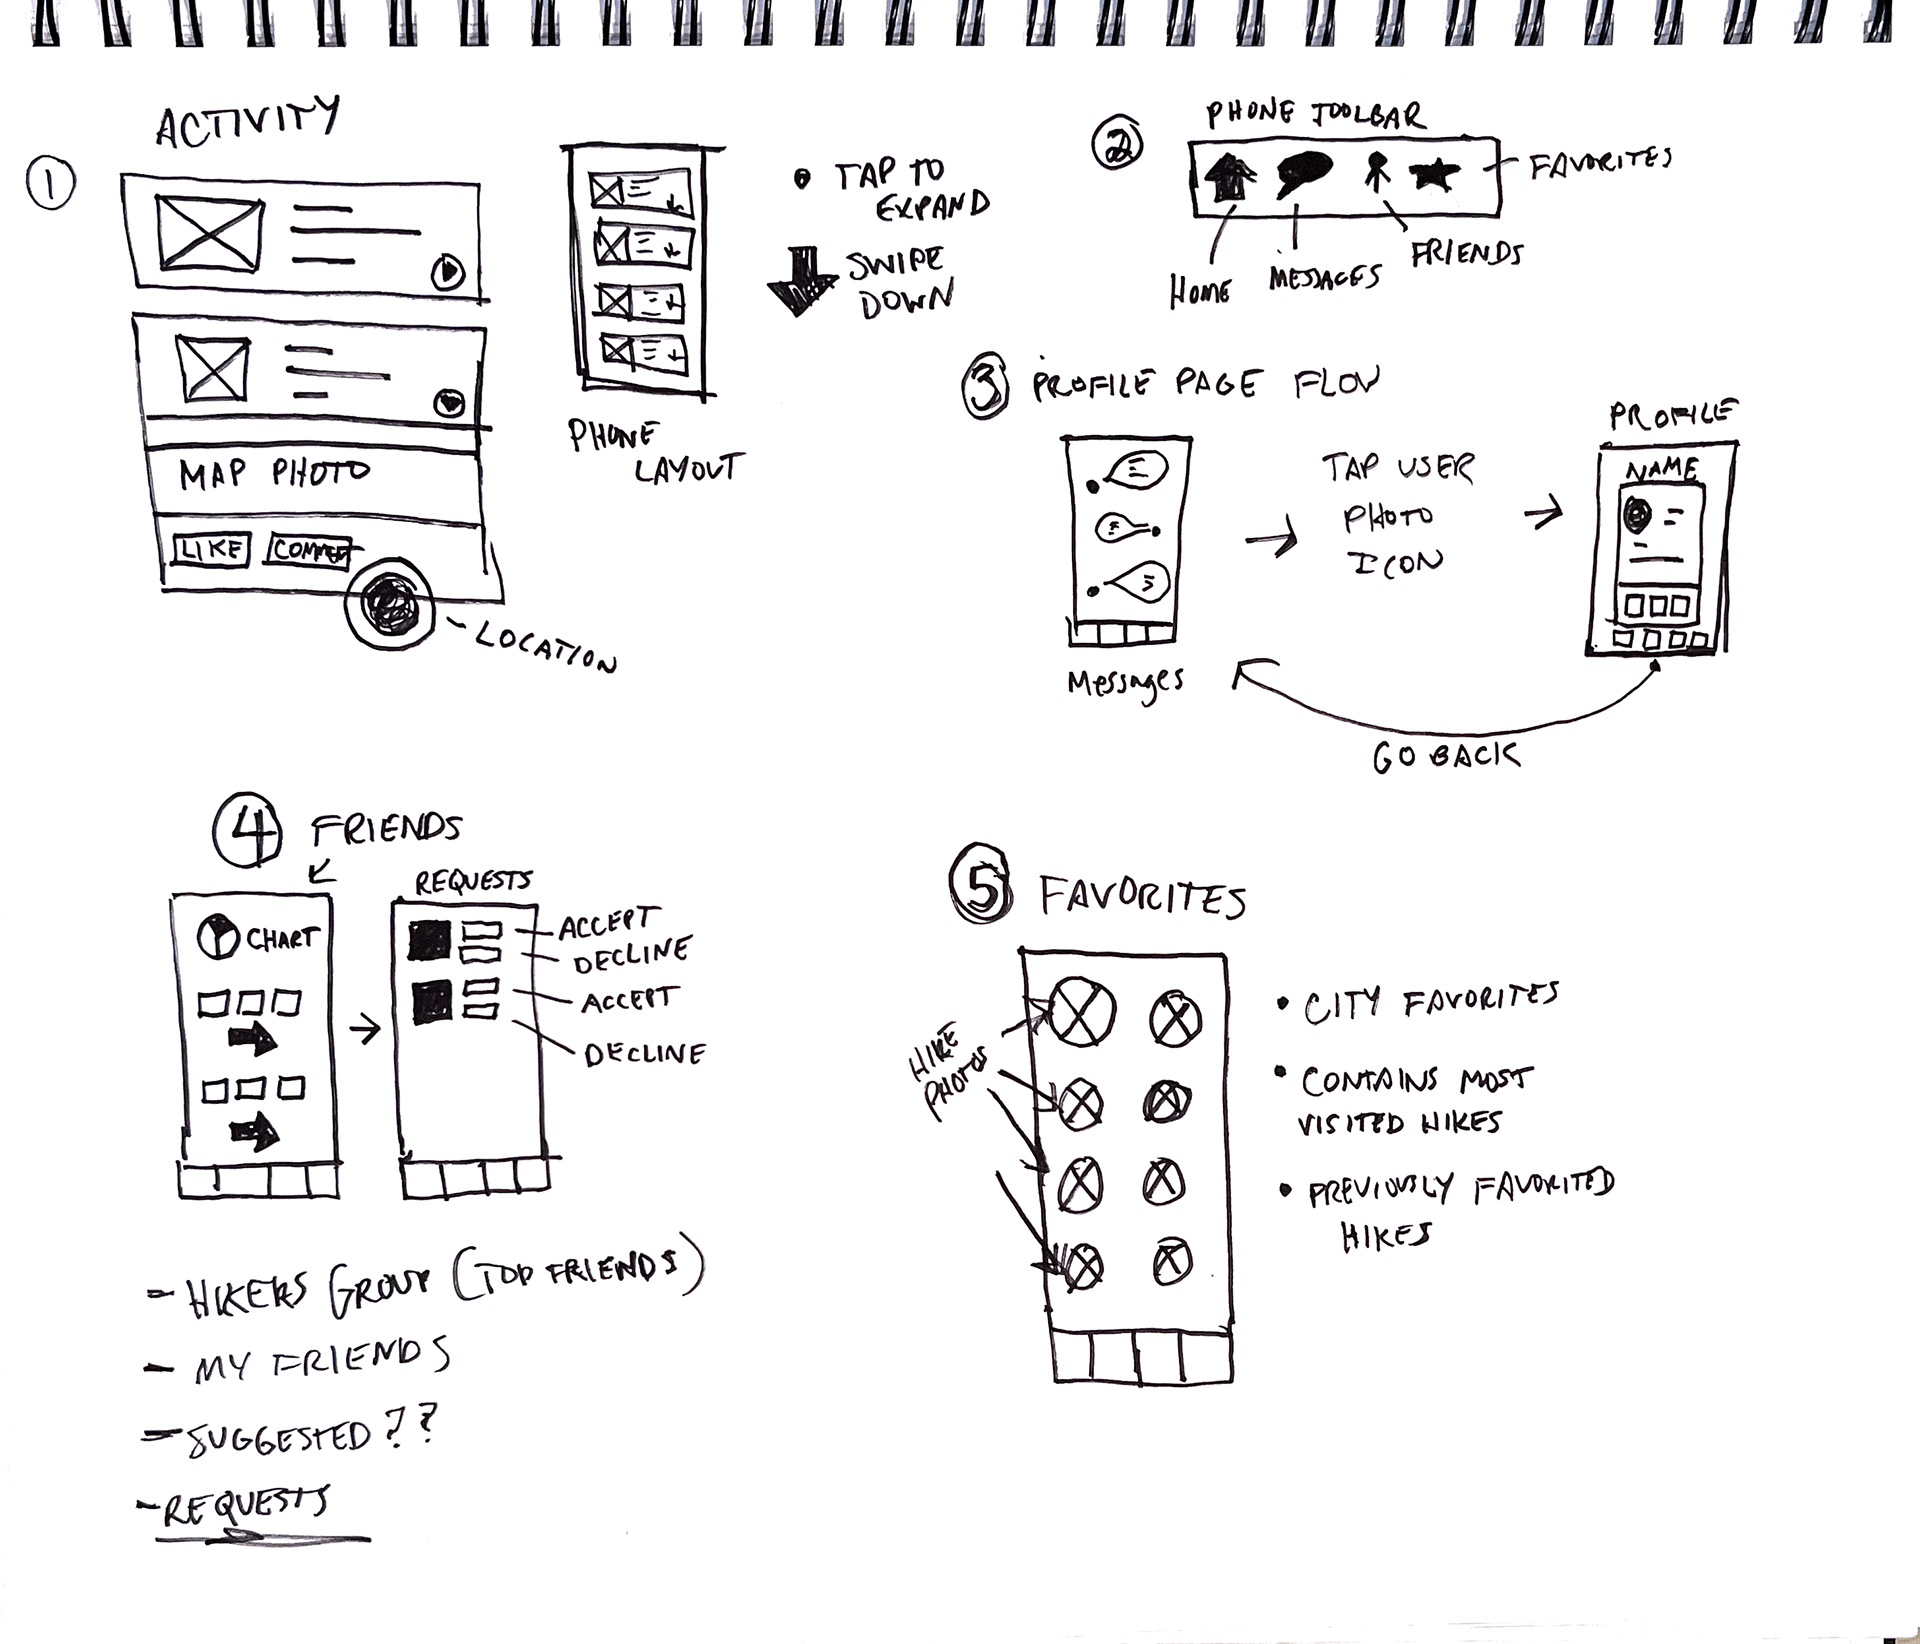 1
ACTIVITY
MAP PHOTO
LIKE
COMMENT
LOCATION
PHONE
LAYOUT
TAP TO
EXPAND
SWIPE
DOWN
2
PHONE TOOLBAR
FAVORITES
FRIENDS
MESSAGES
HOME
3 PROFILE PAGE FLOW
Messages
TAP USER
PHOTO
ICON
PROFILE
NAME
GO BACK
4 FRIENDS
CHART
REQUESTS
ACCEPT
DECLINE
ACCEPT
DECLINE
- HIKERS GROUP (TOP FRIENDS)
- MY FRIENDS
- SUGGESTED??
- REQUESTS
5 FAVORITES
HIKE
PHOTOS
• CITY FAVORITES
• CONTAINS MOST
VISITED HIKES
• PREVIOUSLY FAVORITED
HIKES